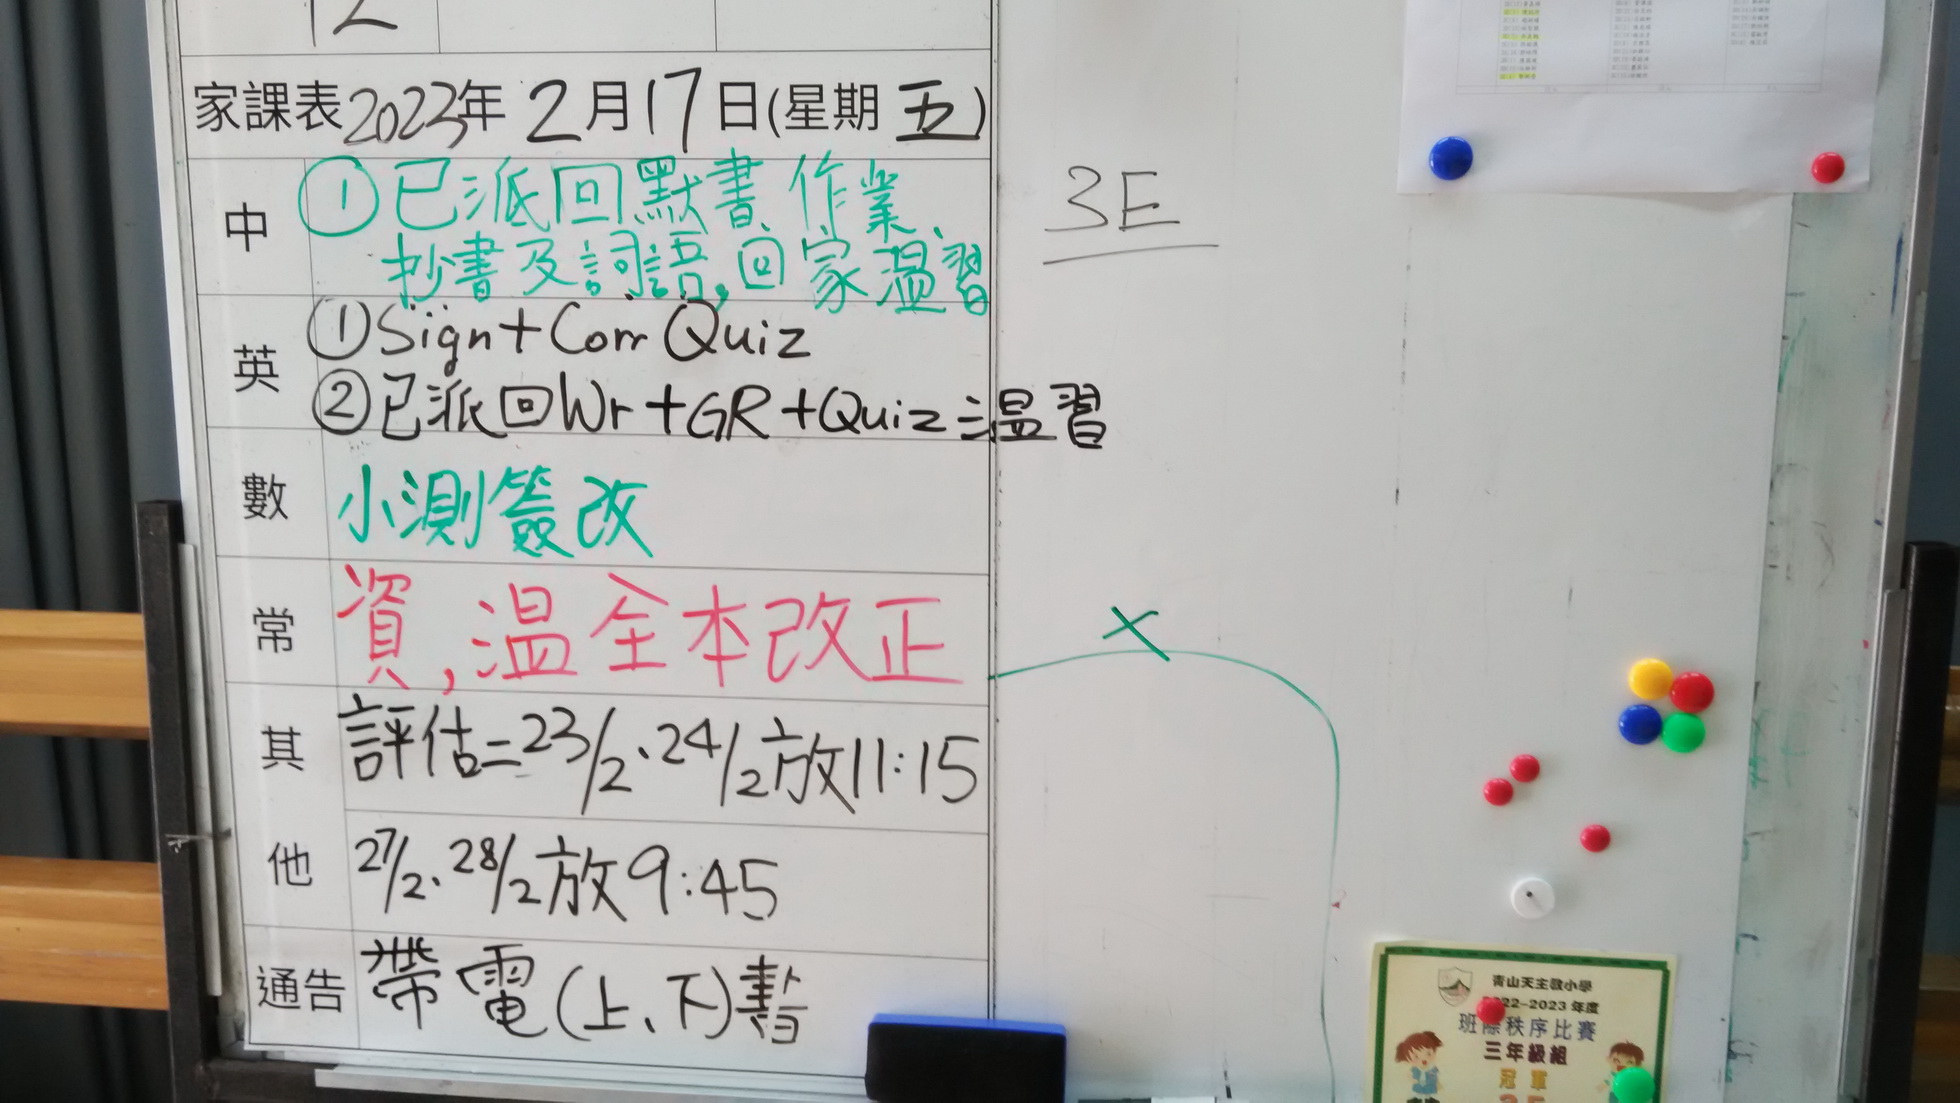 12
家課表2023年 2月17日(星期 五)
中
①已派回默書、作業、
抄書及詞語,回家溫習
3E
英
①Sign+Corr Quiz
②已派回Wr+GR+Quiz=溫習
數
小測簽改
常
資,溫全本改正
其他
評估=23/2、24/2放11:15
27/2、28/2放9:45
通告
帶電(上、下)書
青山天主教小學
2022-2023 年度
班際秩序比賽
三年級組
冠軍
3E